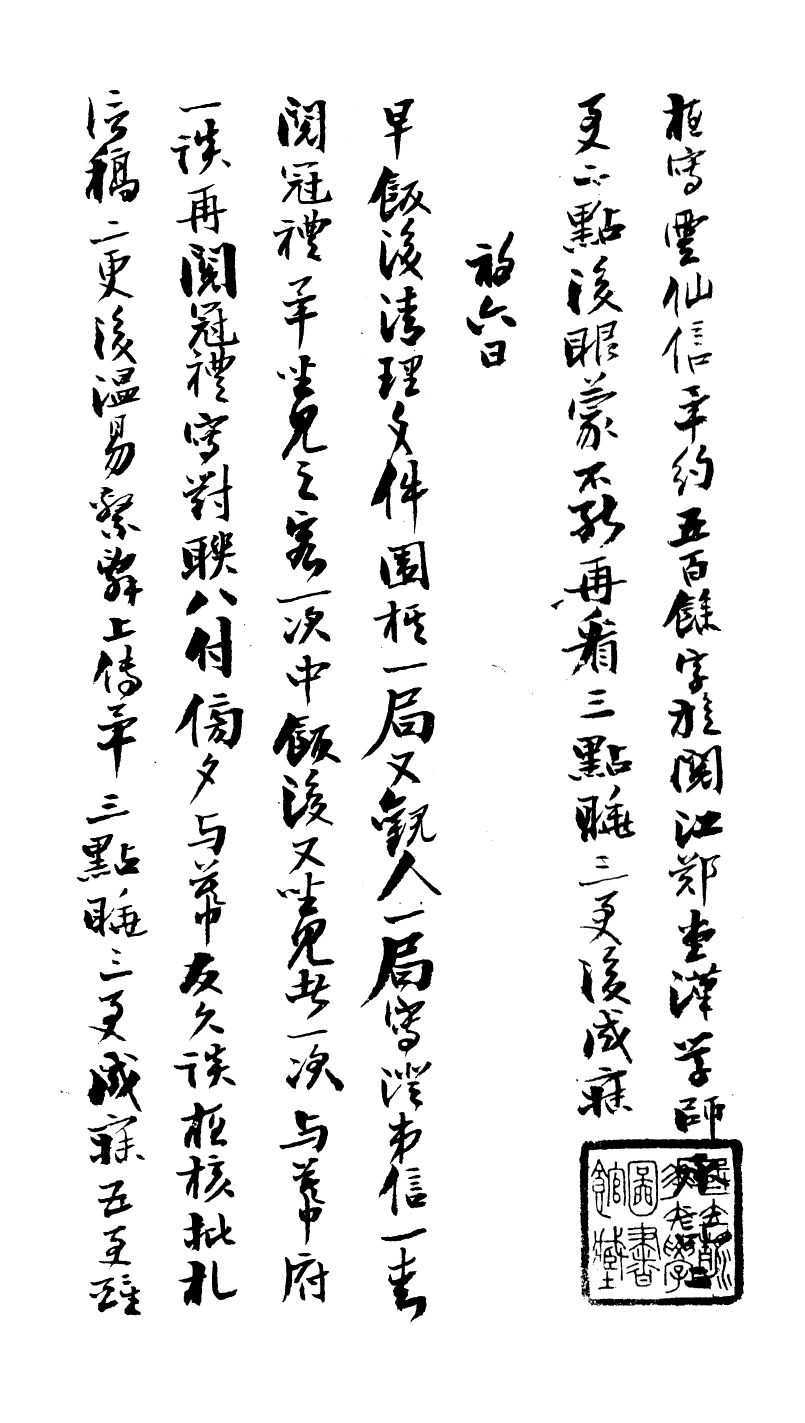 夜寫雲仙信畢約五百餘字旋閱江鄭堂漢學師
更二點後眼蒙不能再看三點睡三更後成寐
初六日
早飯後清理文件圍棋一局又觀人一局寫澄弟信一
閱冠禮畢坐見之客一次中飯後又坐見者一次与幕府
一談再閱冠禮寫對聯八付傍夕与幕友久談夜核批札
信稿二更後温易繫辭上傳畢三點睡三更成寐五更醒
圖書
館藏